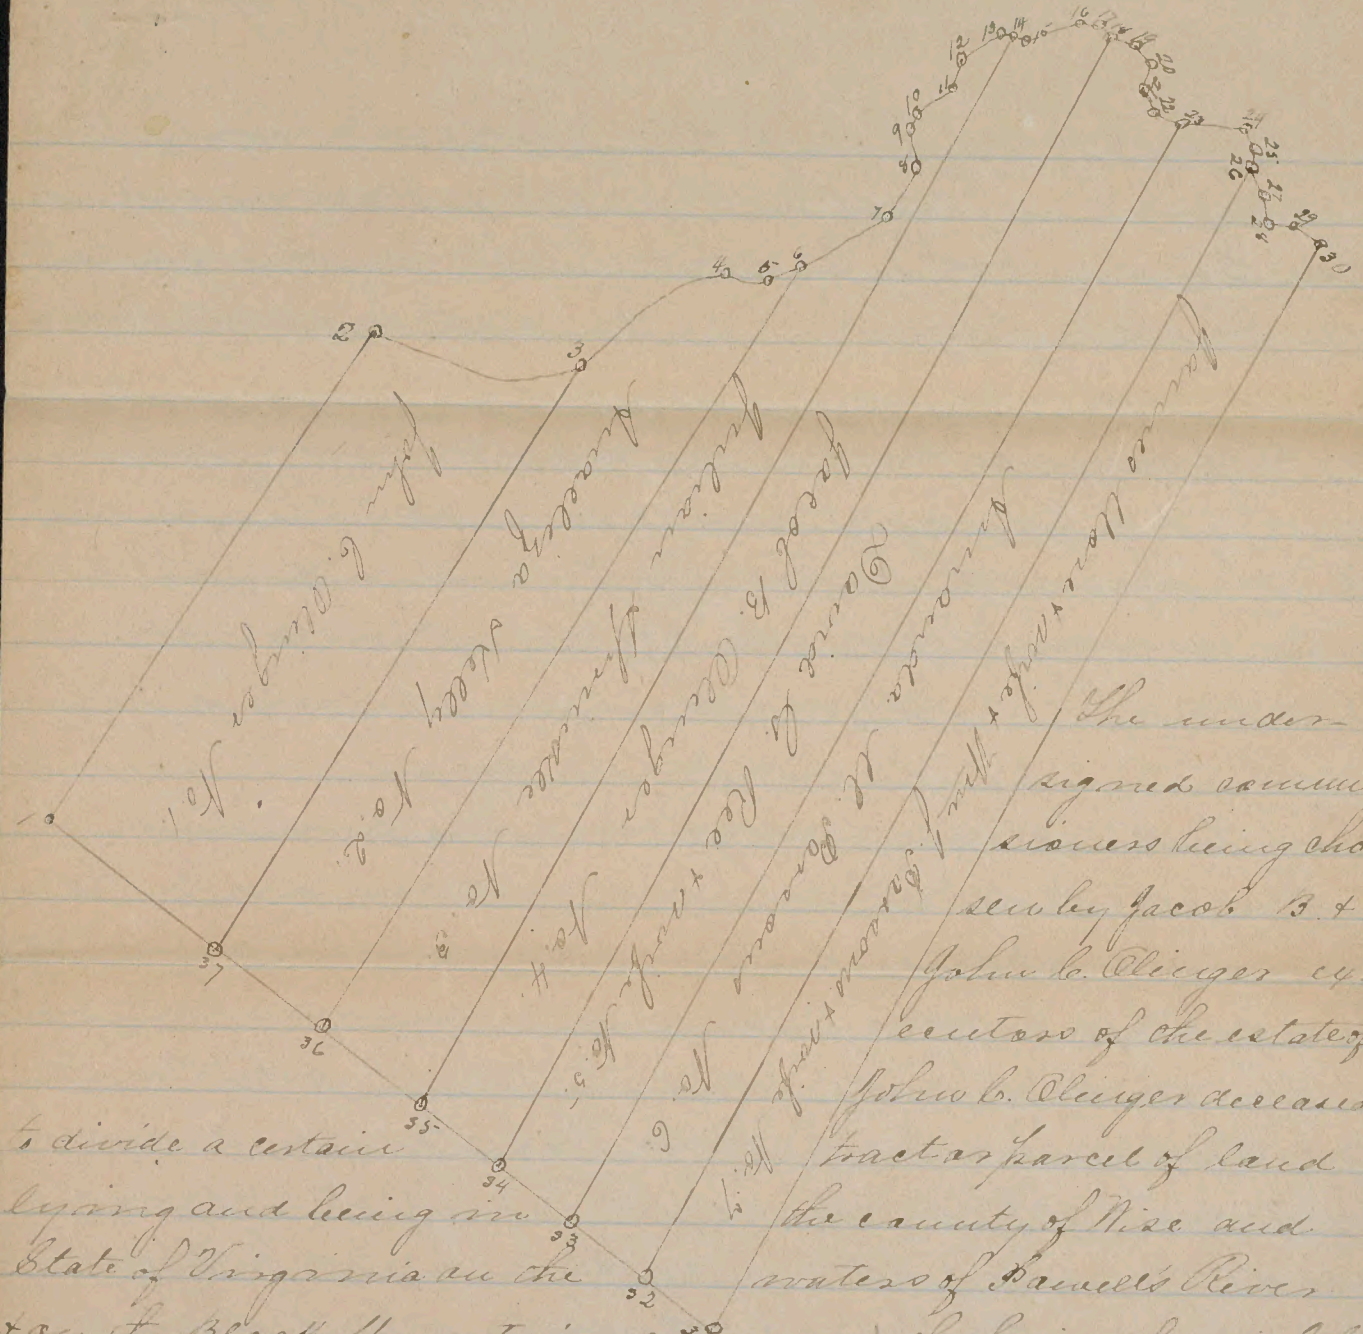 2
3
4
5
6
7
8
9
10
11
12
13
14
15
16
17
18
19
20
21
22
23
24
25
26
27
28
29
30
1
37
36
35
34
33
32
John C. Olinger No. 1.
Anaeliza Kelly No. 2.
Julian No. 3.
Jacob B. Olinger No. 4.
David C. Ree + wife No. 5.
Amanda M. Parsons No. 6.
James + wife + Wm J. Parsons + wife No. 7
The under-
signed comm
sioners being cho
sen by Jacob B. +
John C. Olinger ex
ecutors of the estate of
John C. Olinger deceased
to divide a certain tract or parcel of land
lying and being in the county of Wise and
State of Virginia on the waters of Powell's River